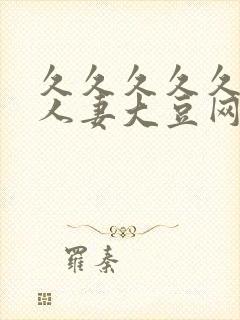 久久久久久
人妻大豆网
羅秦